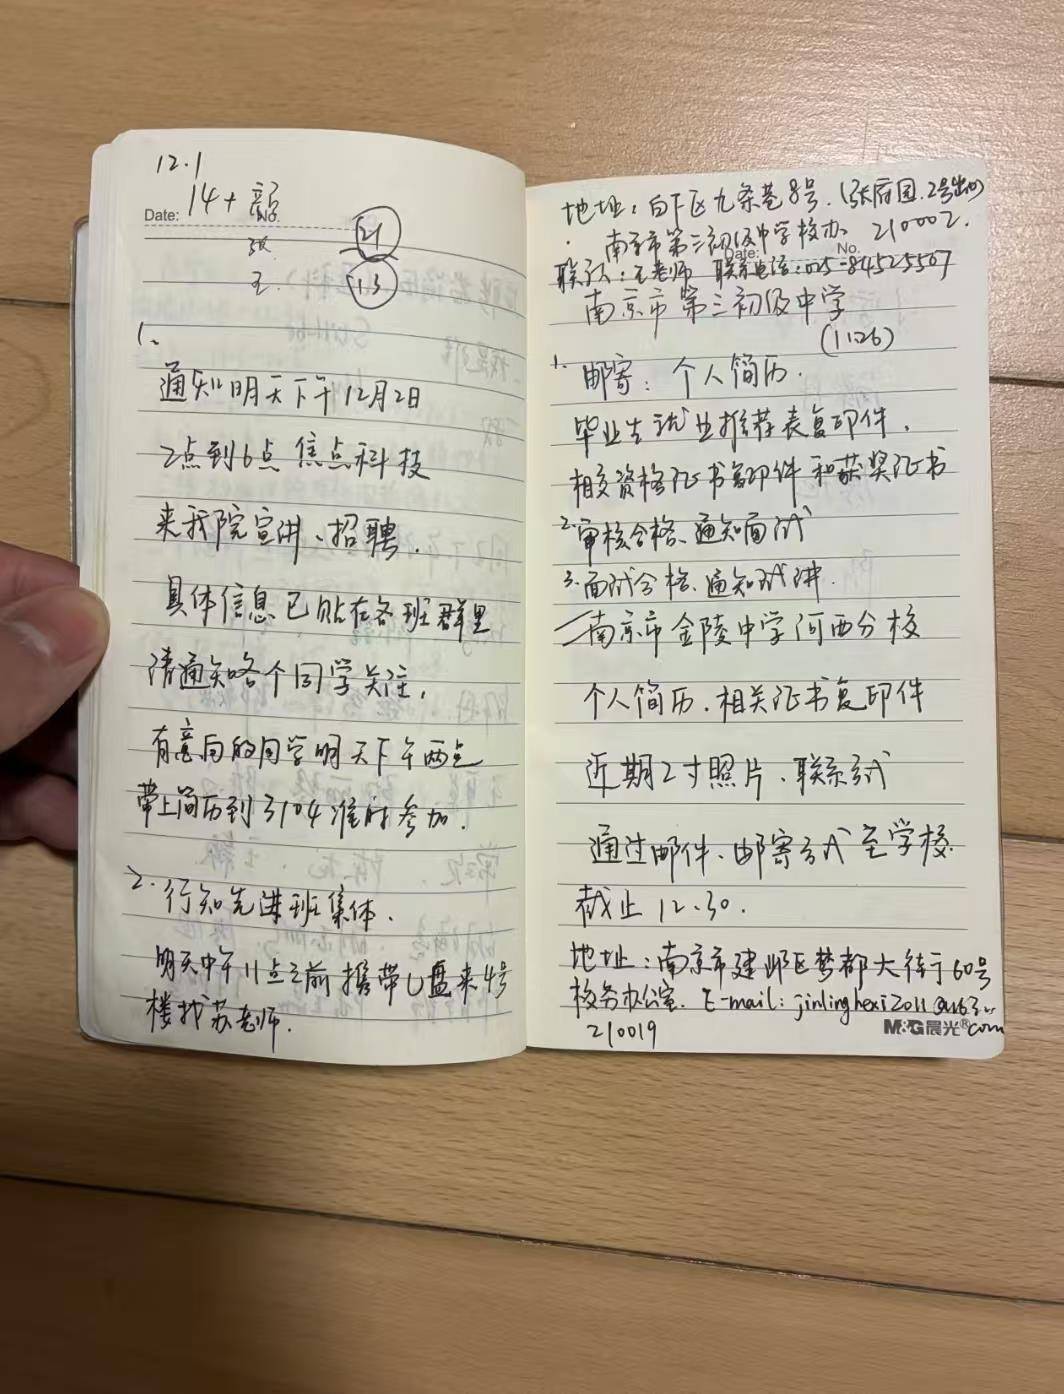 12.1
Date: 14+ No.
张
王
21
13
1、
通知明天下午12月2日
2点到6点 焦点科技
来我院宣讲、招聘.
具体信息已贴在各班群里
请通知各个同学关注,
有意向的同学明天下午两点
带上简历到3104准时参加.
2. 行知先进班集体.
明天中午11点之前携带U盘来4号
楼找苏老师.
地址: 白下区九条巷8号. (张府园.2号出口)
南京市第三初级中学校办. 210002.
Date: No.
联系人: 王老师 联系电话: 025-84525507
南京市第三初级中学
(1126)
1. 邮寄: 个人简历.
毕业生就业推荐表复印件.
相关资格证书复印件和获奖证书
2. 审核合格、通知面试
3. 面试合格、通知试讲.
南京市金陵中学河西分校
个人简历. 相关证书复印件
近期2寸照片. 联系方式
通过邮件、邮寄方式至学校.
截止12.30.
地址: 南京市建邺区梦都大街60号
校务办公室. E-mail: jinlinghexi2011@163.com
210019
M&G晨光®